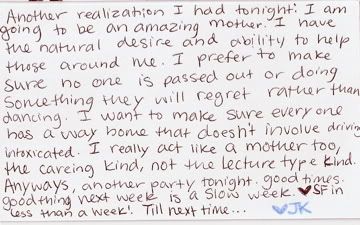 Another realization I had tonight: I am
going to be an amazing mother. I have
the natural desire and ability to help
those around me. I prefer to make
sure no one is passed out or doing
something they will regret rather than
dancing. I want to make sure every one
has a way home that doesn't involve driving
intoxicated. I really act like a mother too,
the careing kind, not the lecture type kind.
Anyways, another party tonight. good times.
good thing next week is a slow week. ♥SF in
less than a week! Till next time... ♥JK